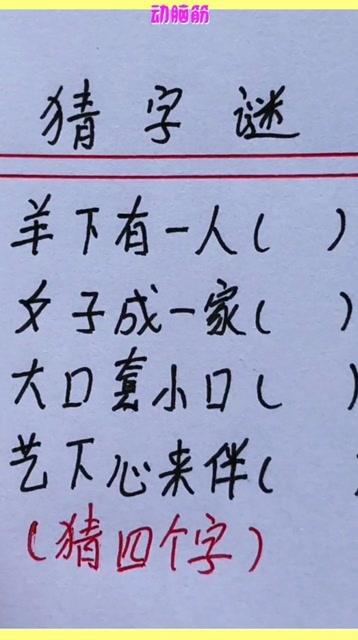 动脑筋
猜字谜
羊下有一人( )
夕子成一家( )
大口套小口( )
艺下心来伴(
(猜四个字)